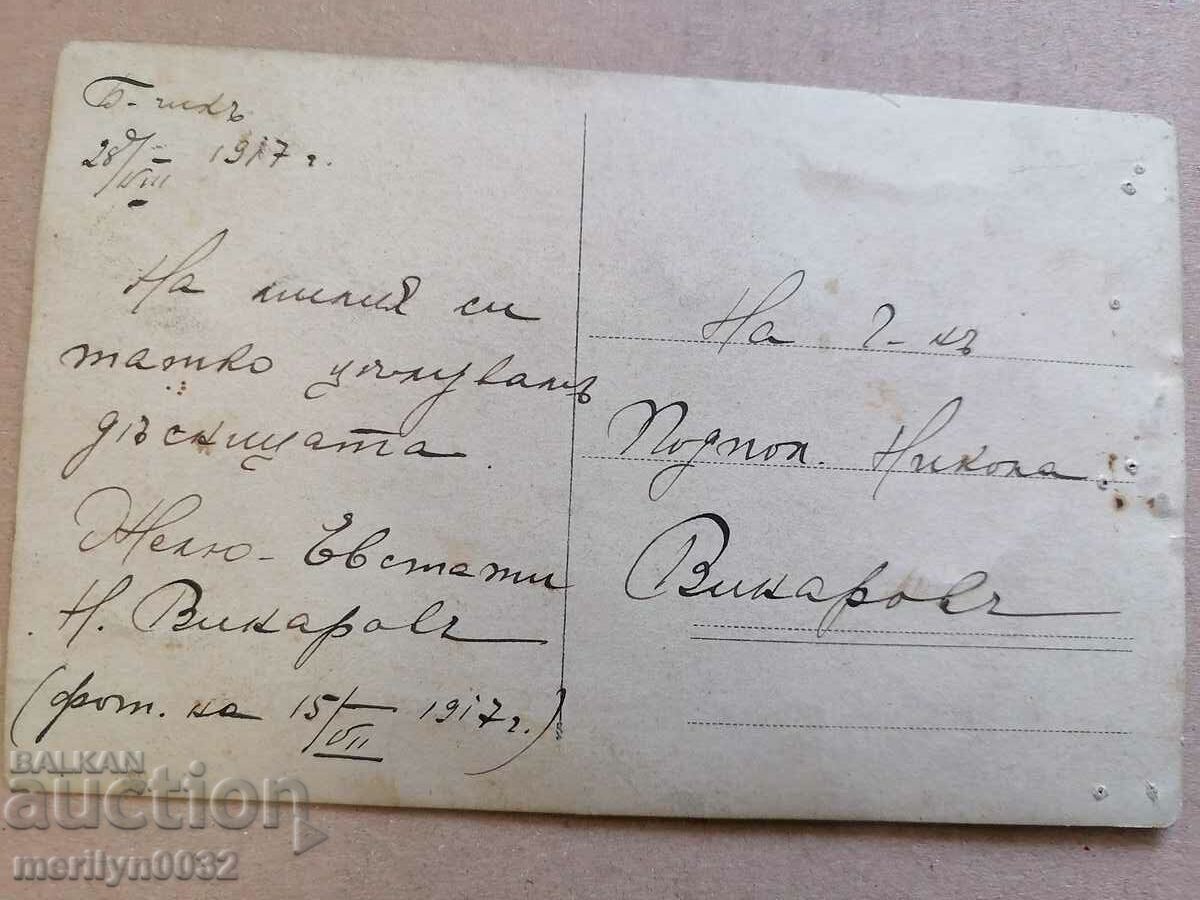 Б-чикъ
28/VIII 1917 г.
На милия си
татко цѣлувамъ
дѣсницата.
Желю-Евстати
Н. Викаровъ
(фот. на 15/VII 1917 г.)
На Г-нъ
Подпол. Никола
Викаровъ
BALKAN
auction
merilyn0032